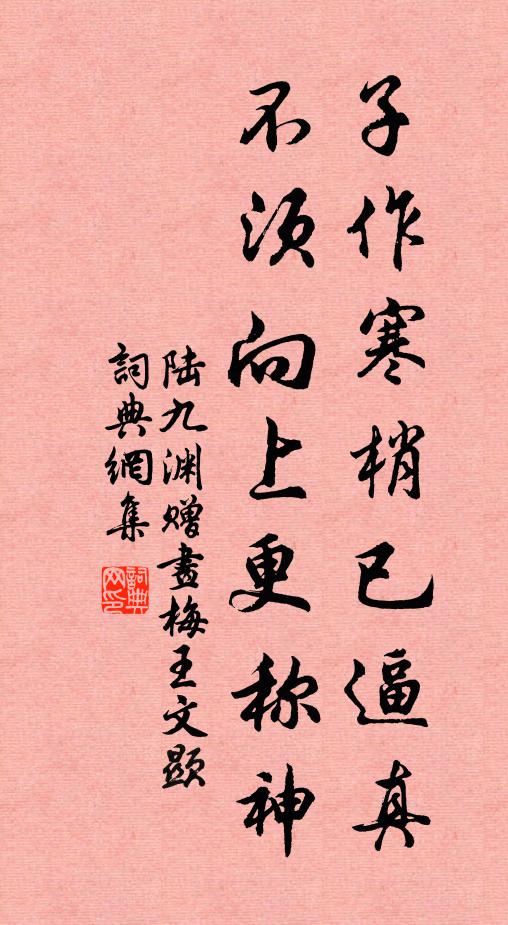 子作寒梢已逼真
不须向上更称神
陆九渊赠畫梅王文顯
詞典網集
詞典网印